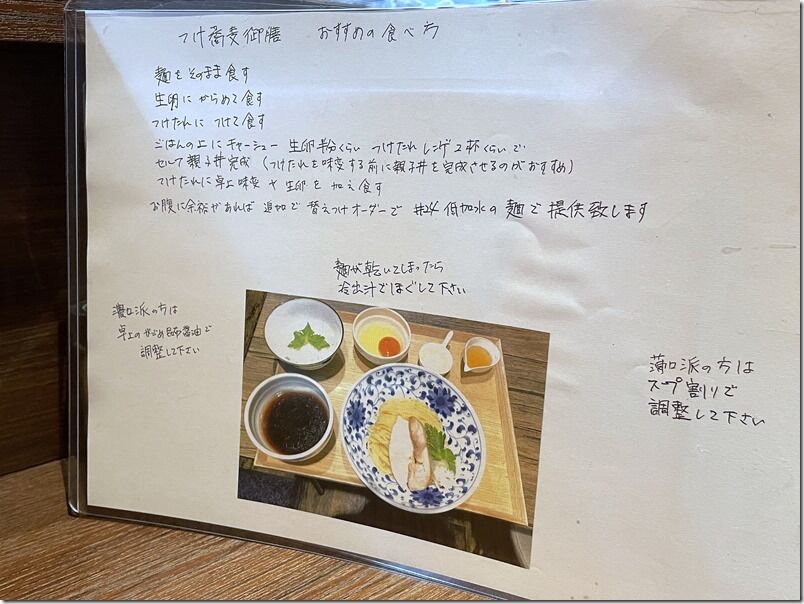 つけ蕎麦御膳 おすすめの食べ方
麺をそのまま食す
生卵にからめて食す
つけだれにつけて食す
ごはんの上にチャーシュー 生卵半分くらい つけだれ レンゲ2杯くらいで
セルフ親子丼完成（つけだれを味変する前に親子丼を完成させるのがおすすめ）
つけだれに卓上味変や生卵を加え食す
お腹に余裕があれば 追加で 替えつけオーダーで 低加水の麺で提供致します
麺が乾いてしまったら
冷出汁でほぐして下さい
濃口派の方は
卓上の 昆布醤油で
調整して下さい
薄口派の方は
スープ割りで
調整して下さい